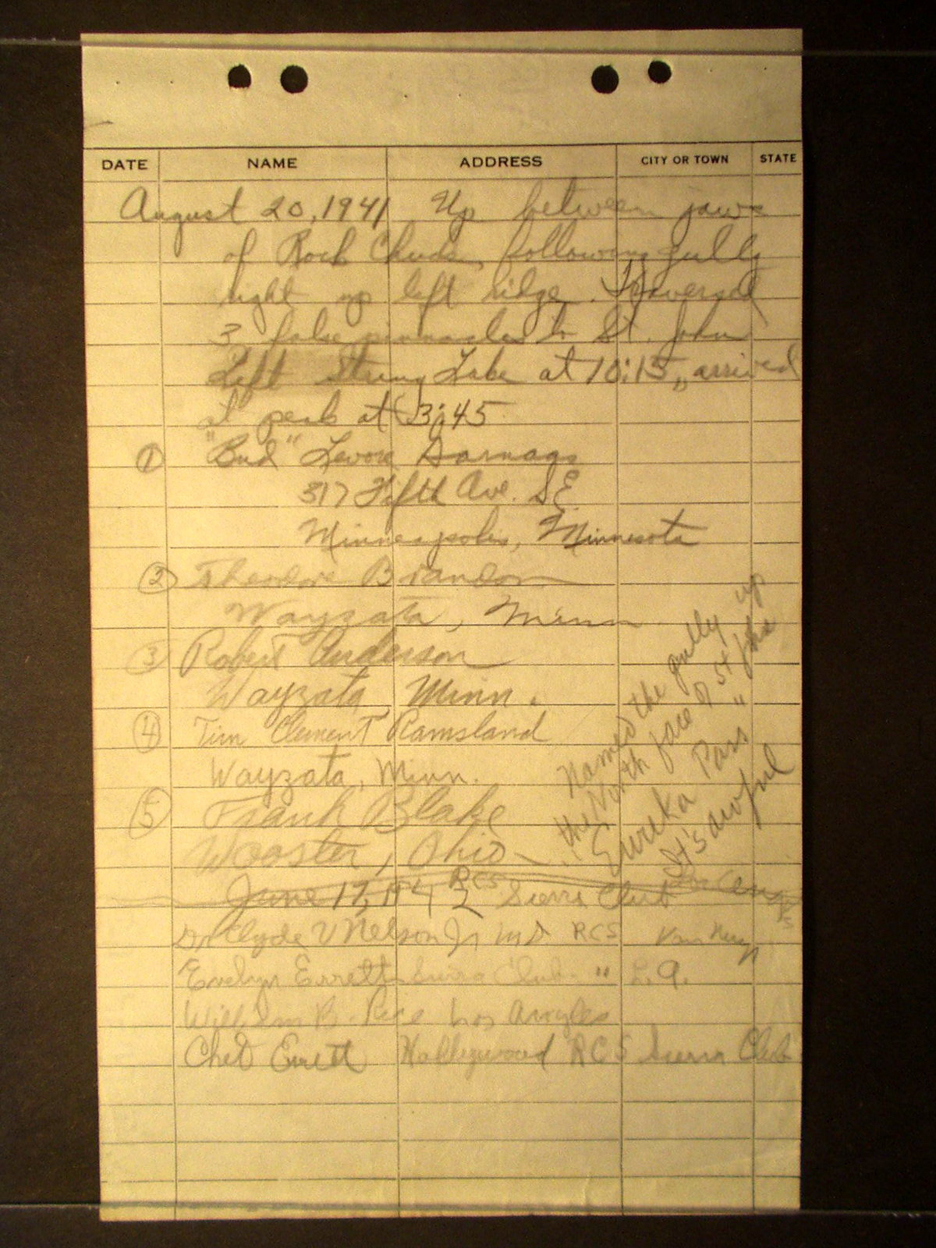 DATE NAME ADDRESS CITY OR TOWN STATE
August 20, 1941 Up between jaws
of Rock Chuck, following gully
right up left ridge. Traversed
3 false pinnacles to St. John
Left String Lake at 10:15, arrived
at peak at 3:45
① "Bud" Levore
317 Fifth Ave. SE
Minneapolis, Minnesota
② Theodore Brandon
Wayzata, Minn
③ Robert Anderson
Wayzata, Minn.
④ Tim Clement Ramsland
Wayzata, Minn.
⑤ Frank Blake
Wooster, Ohio
Named the gully up
the North face of St John
"Eureka Pass"
It's awful
June 17, 194 RCS Sierra Club
Dr Clyde V Nelson Jr MD RCS
Evelyn Errett Sierra Club " L.A.
William B. Los Angeles
Chet Errett Hollywood RCS Sierra Club